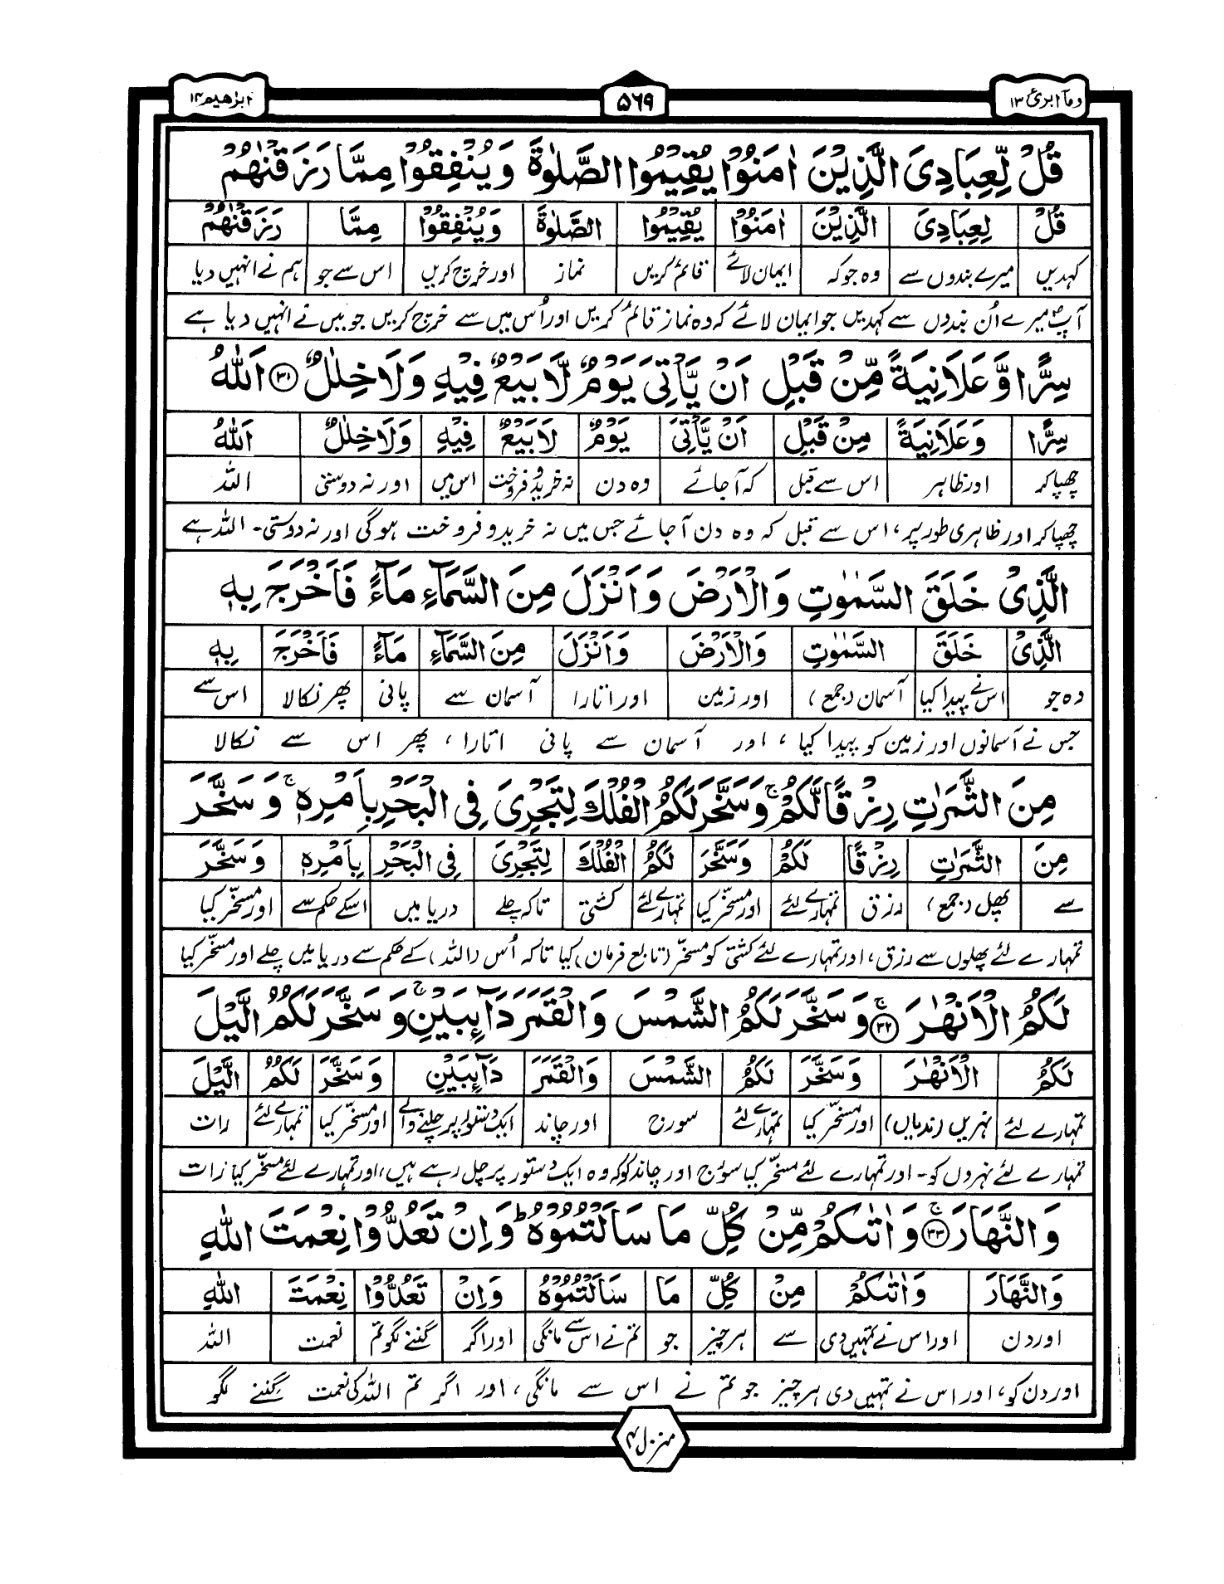 وما ابرئ ١٣
۵۶۹
ابرٰھیم ١۴
قُلْ لِّعِبَادِیَ الَّذِیْنَ اٰمَنُوْا یُقِیْمُوا الصَّلٰوةَ وَیُنْفِقُوْا مِمَّا رَزَقْنٰهُمْ
قُلْ لِّعِبَادِیَ الَّذِیْنَ اٰمَنُوْا یُقِیْمُوا الصَّلٰوةَ وَیُنْفِقُوْا مِمَّا رَزَقْنٰهُمْ
کہدیں میرے بندوں سے وہ جو کہ ایمان لائے قائم کریں نماز اور خرچ کریں اس سے جو ہم نے انہیں دیا
آپ میرے اُن بندوں سے کہدیں جو ایمان لائے کہ وہ نماز قائم کریں اور اُس میں سے خرچ کریں جو میں نے انہیں دیا ہے
سِرًّا وَّعَلَانِیَةً مِّنْ قَبْلِ اَنْ یَّاْتِیَ یَوْمٌ لَّا بَیْعٌ فِیْهِ وَلَا خِلٰلٌ ﴿٣١﴾ اَللّٰهُ
سِرًّا وَعَلَانِیَةً مِنْ قَبْلِ اَنْ یَّاْتِیَ یَوْمٌ لَا بَیْعٌ فِیْهِ وَلَا خِلٰلٌ اَللّٰهُ
چھپا کر اور ظاہر اس سے قبل کہ آجائے وہ دن نہ خرید و فروخت اس میں اور نہ دوستی اللہ
چھپا کر اور ظاہری طور پر، اس سے قبل کہ وہ دن آجائے جس میں نہ خرید و فروخت ہو گی اور نہ دوستی۔ اللہ ہے
الَّذِیْ خَلَقَ السَّمٰوٰتِ وَالْاَرْضَ وَاَنْزَلَ مِنَ السَّمَآءِ مَآءً فَاَخْرَجَ بِهٖ
الَّذِیْ خَلَقَ السَّمٰوٰتِ وَالْاَرْضَ وَاَنْزَلَ مِنَ السَّمَآءِ مَآءً فَاَخْرَجَ بِهٖ
وہ جو اس نے پیدا کیا آسمان (جمع) اور زمین اور اتارا آسمان سے پانی پھر نکالا اس سے
جس نے آسمانوں اور زمین کو پیدا کیا، اور آسمان سے پانی اتارا، پھر اس سے نکالا
مِنَ الثَّمَرٰتِ رِزْقًا لَّكُمْ ۚ وَسَخَّرَ لَكُمُ الْفُلْكَ لِتَجْرِیَ فِی الْبَحْرِ بِاَمْرِهٖ ۚ وَسَخَّرَ
مِنَ الثَّمَرٰتِ رِزْقًا لَكُمْ وَسَخَّرَ لَكُمُ الْفُلْكَ لِتَجْرِیَ فِی الْبَحْرِ بِاَمْرِهٖ وَسَخَّرَ
سے پھل (جمع) رزق تمہارے لئے اور مسخر کیا تمہارے لئے کشتی تاکہ چلے دریا میں اسکے حکم سے اور مسخر کیا
تمہارے لئے پھلوں سے رزق، اور تمہارے لئے کشتی کو مسخّر (تابع فرمان) کیا تاکہ اُس (اللہ) کے حکم سے دریا میں چلے اور مسخّر کیا
لَكُمُ الْاَنْهٰرَ ۚ ﴿٣٢﴾ وَسَخَّرَ لَكُمُ الشَّمْسَ وَالْقَمَرَ دَآئِبَیْنِ ۚ وَسَخَّرَ لَكُمُ الَّیْلَ
لَكُمُ الْاَنْهٰرَ وَسَخَّرَ لَكُمُ الشَّمْسَ وَالْقَمَرَ دَآئِبَیْنِ وَسَخَّرَ لَكُمُ الَّیْلَ
تمہارے لئے نہریں (ندیاں) اور مسخر کیا تمہارے لئے سورج اور چاند ایک دستور پر چلنے والے اور مسخر کیا تمہارے لئے رات
تمہارے لئے نہروں کو۔ اور تمہارے لئے مسخّر کیا سورج اور چاند کو کہ وہ ایک دستور پر چل رہے ہیں، اور تمہارے لئے مسخّر کیا رات
وَالنَّهَارَ ۚ ﴿٣٣﴾ وَاٰتٰىكُمْ مِّنْ كُلِّ مَا سَاَلْتُمُوْهُ ؕ وَاِنْ تَعُدُّوْا نِعْمَتَ اللّٰهِ
وَالنَّهَارَ وَاٰتٰىكُمْ مِنْ كُلِّ مَا سَاَلْتُمُوْهُ وَاِنْ تَعُدُّوْا نِعْمَتَ اللّٰهِ
اور دن اور اس نے تمہیں دی سے ہر چیز جو تم نے اس سے مانگی اور اگر گننے لگو تم نعمت اللہ
اور دن کو، اور اس نے تمہیں دی ہر چیز جو تم نے اس سے مانگی، اور اگر تم اللہ کی نعمت گننے لگو
منزل ۳